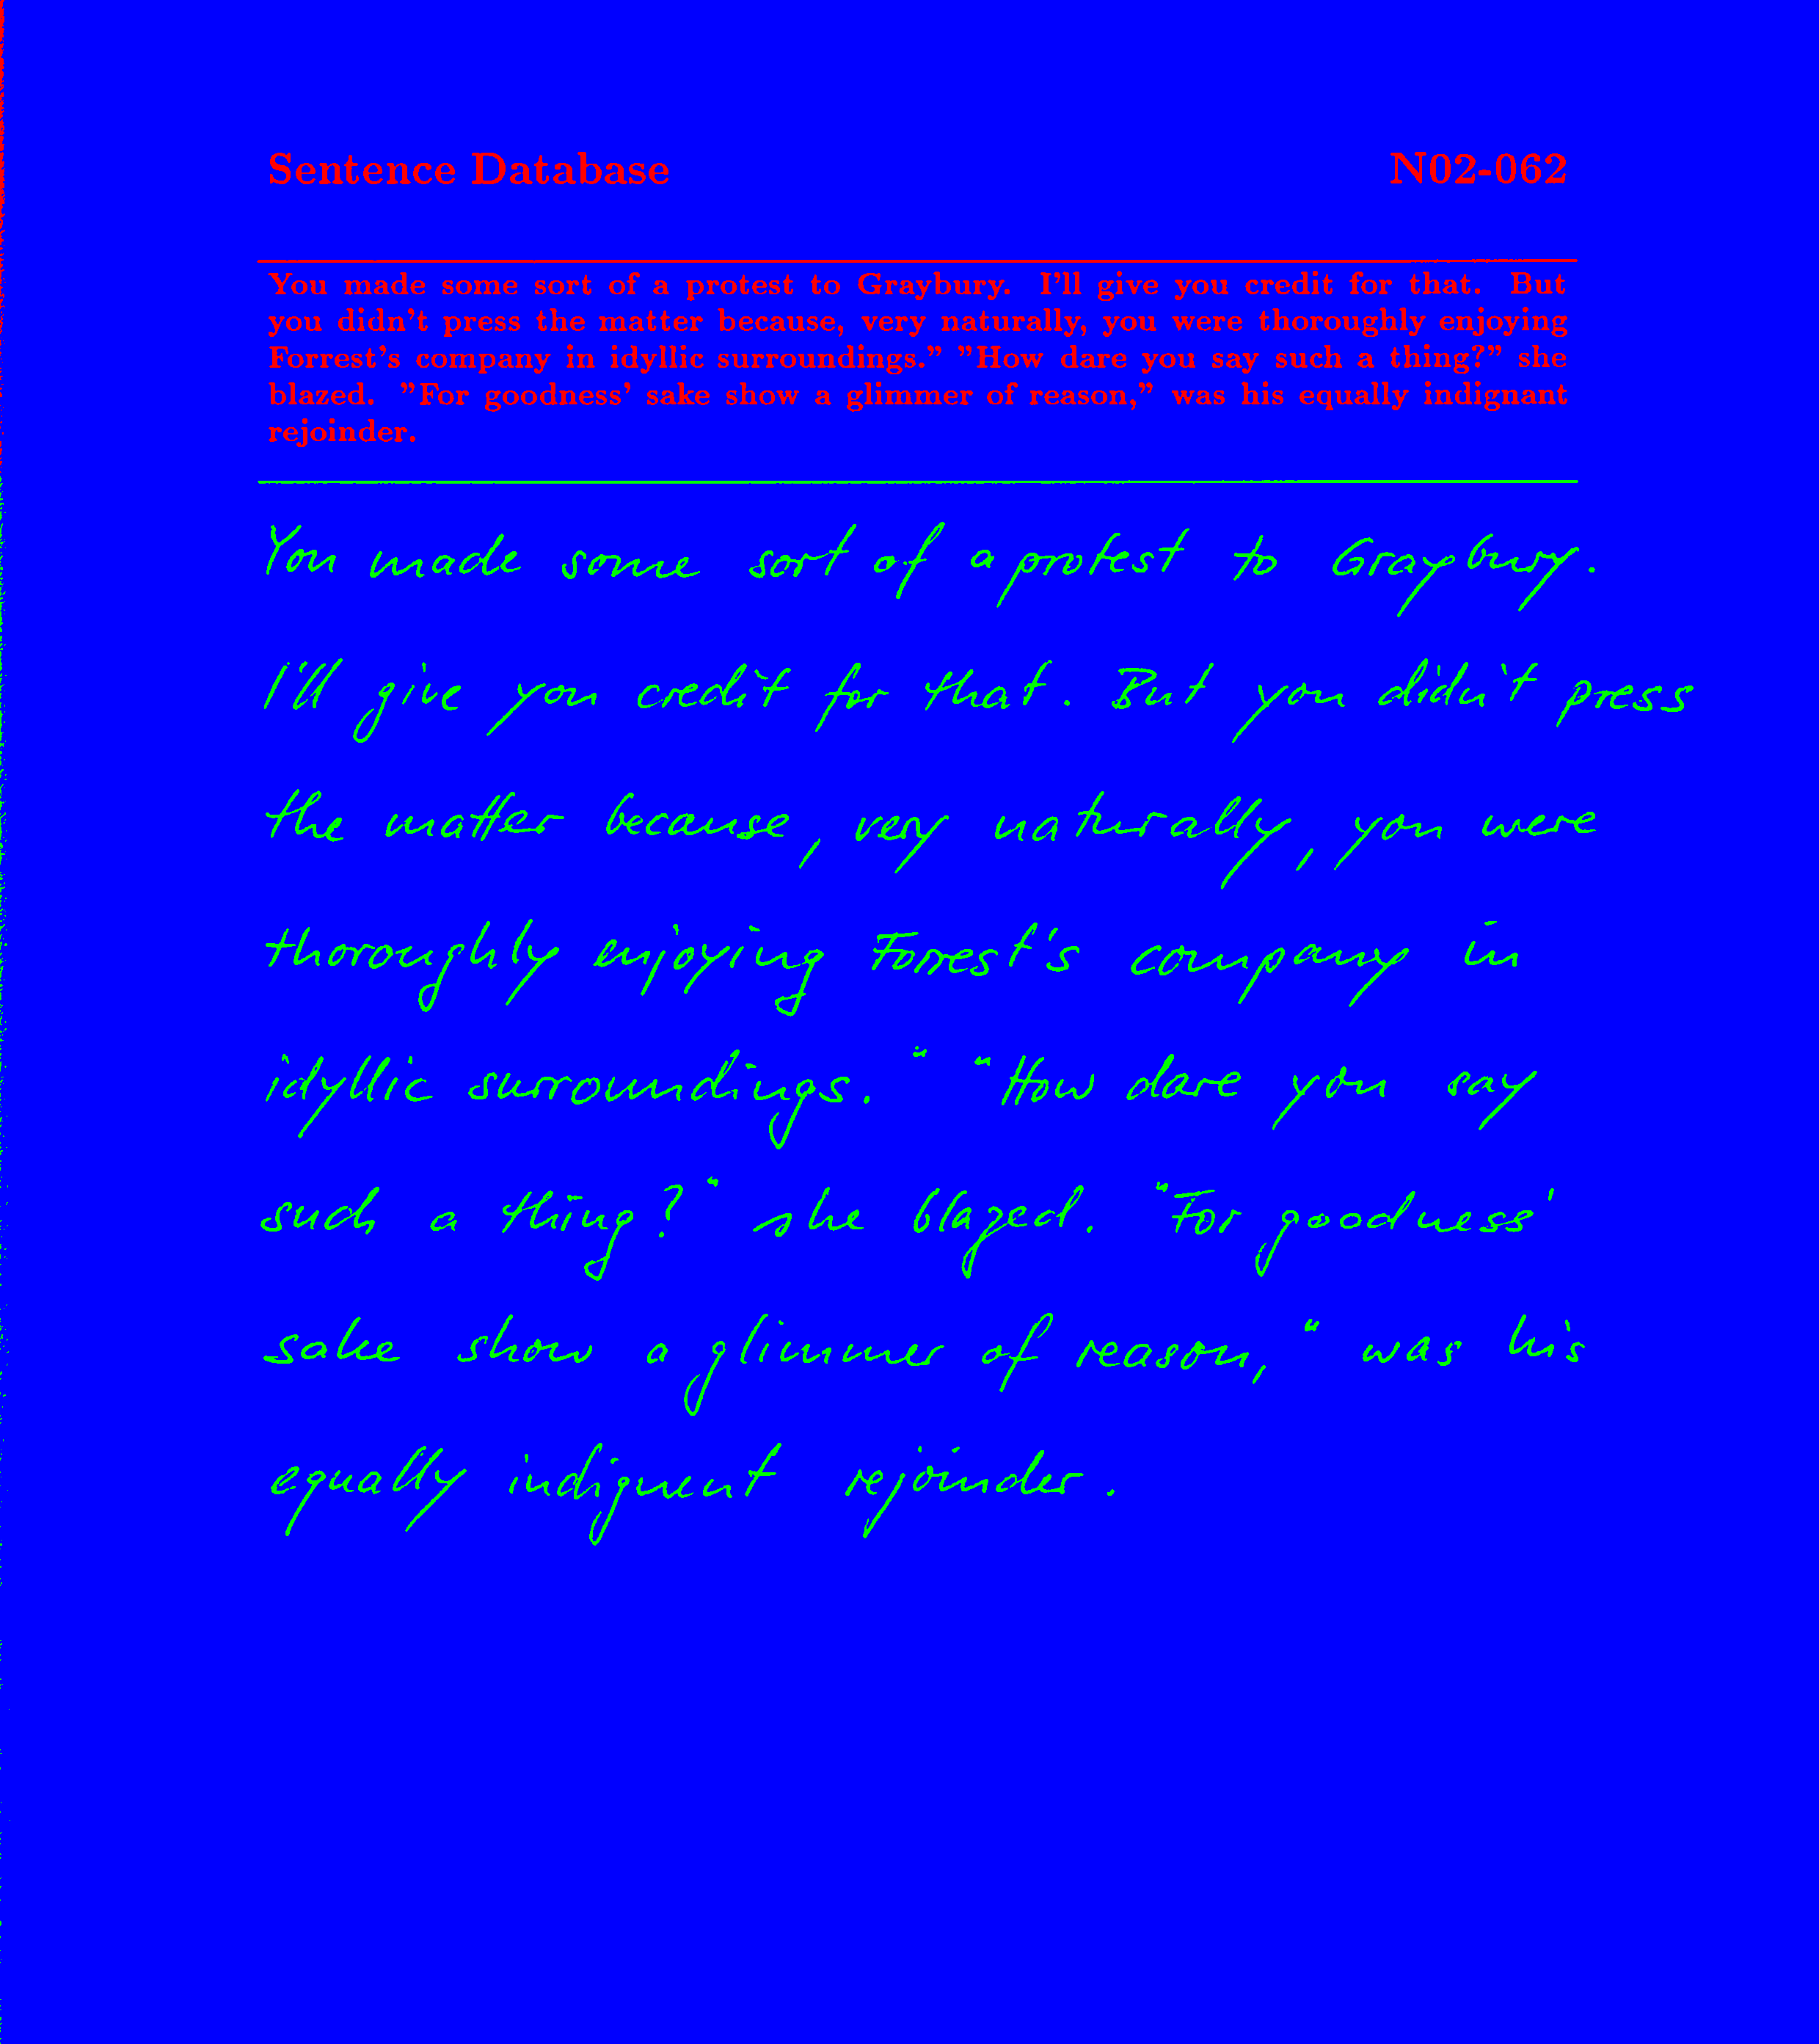 Sentence Database N02-062
You made some sort of a protest to Graybury. I'll give you credit for that. But
you didn't press the matter because, very naturally, you were thoroughly enjoying
Forrest's company in idyllic surroundings." "How dare you say such a thing?" she
blazed. "For goodness' sake show a glimmer of reason," was his equally indignant
rejoinder.
You made some sort of a protest to Graybury.
I'll give you credit for that. But you didn't press
the matter because, very naturally, you were
thoroughly enjoying Forrest's company in
idyllic surroundings." "How dare you say
such a thing?" she blazed. "For goodness'
sake show a glimmer of reason," was his
equally indignent rejoinder.